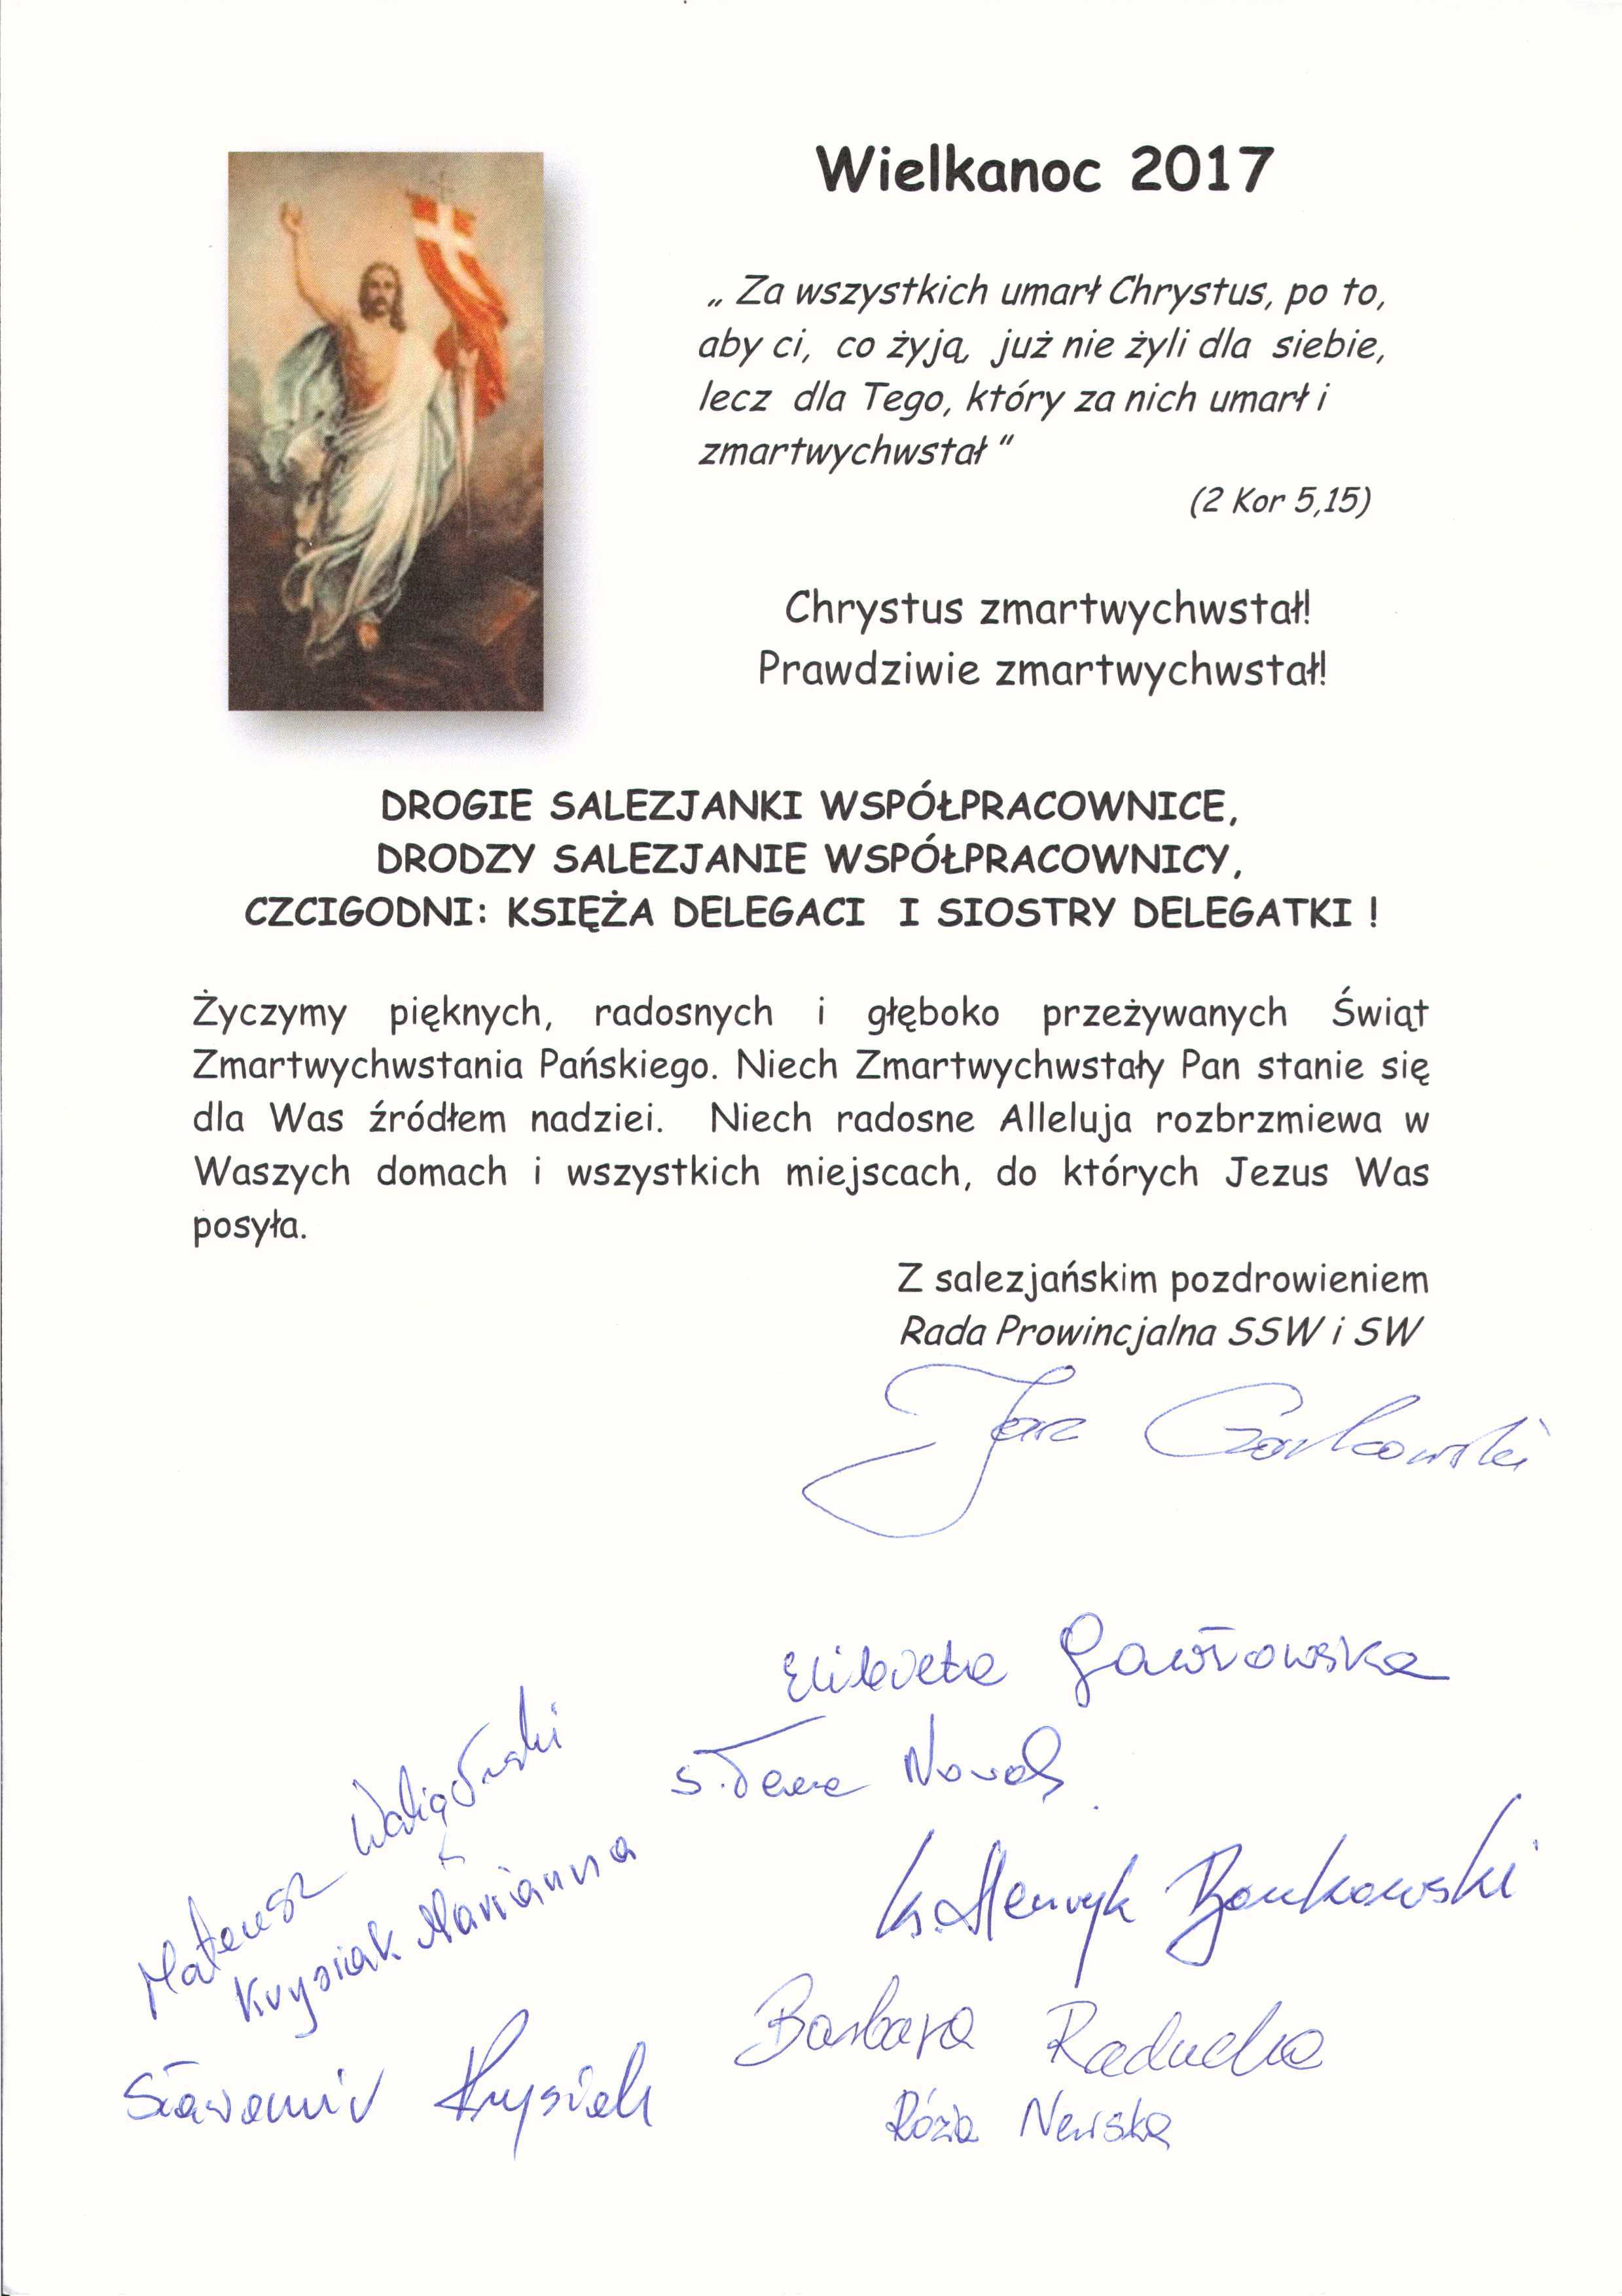 Wielkanoc 2017
„ Za wszystkich umarł Chrystus, po to,
aby ci, co żyją, już nie żyli dla siebie,
lecz dla Tego, który za nich umarł i
zmartwychwstał "
(2 Kor 5,15)
Chrystus zmartwychwstał!
Prawdziwie zmartwychwstał!
DROGIE SALEZJANKI WSPÓŁPRACOWNICE,
DRODZY SALEZJANIE WSPÓŁPRACOWNICY,
CZCIGODNI: KSIĘŻA DELEGACI I SIOSTRY DELEGATKI !
Życzymy pięknych, radosnych i głęboko przeżywanych Świąt
Zmartwychwstania Pańskiego. Niech Zmartwychwstały Pan stanie się
dla Was źródłem nadziei. Niech radosne Alleluja rozbrzmiewa w
Waszych domach i wszystkich miejscach, do których Jezus Was
posyła.
Z salezjańskim pozdrowieniem
Rada Prowincjalna SSW i SW
Czarkowski
Elżbieta Gawłowska
s. Nowak
Mateusz
Krysiak Marianna
ks. Henryk Bonkowski
Barbara Raducka
Sławomir Krysiak
Rózia